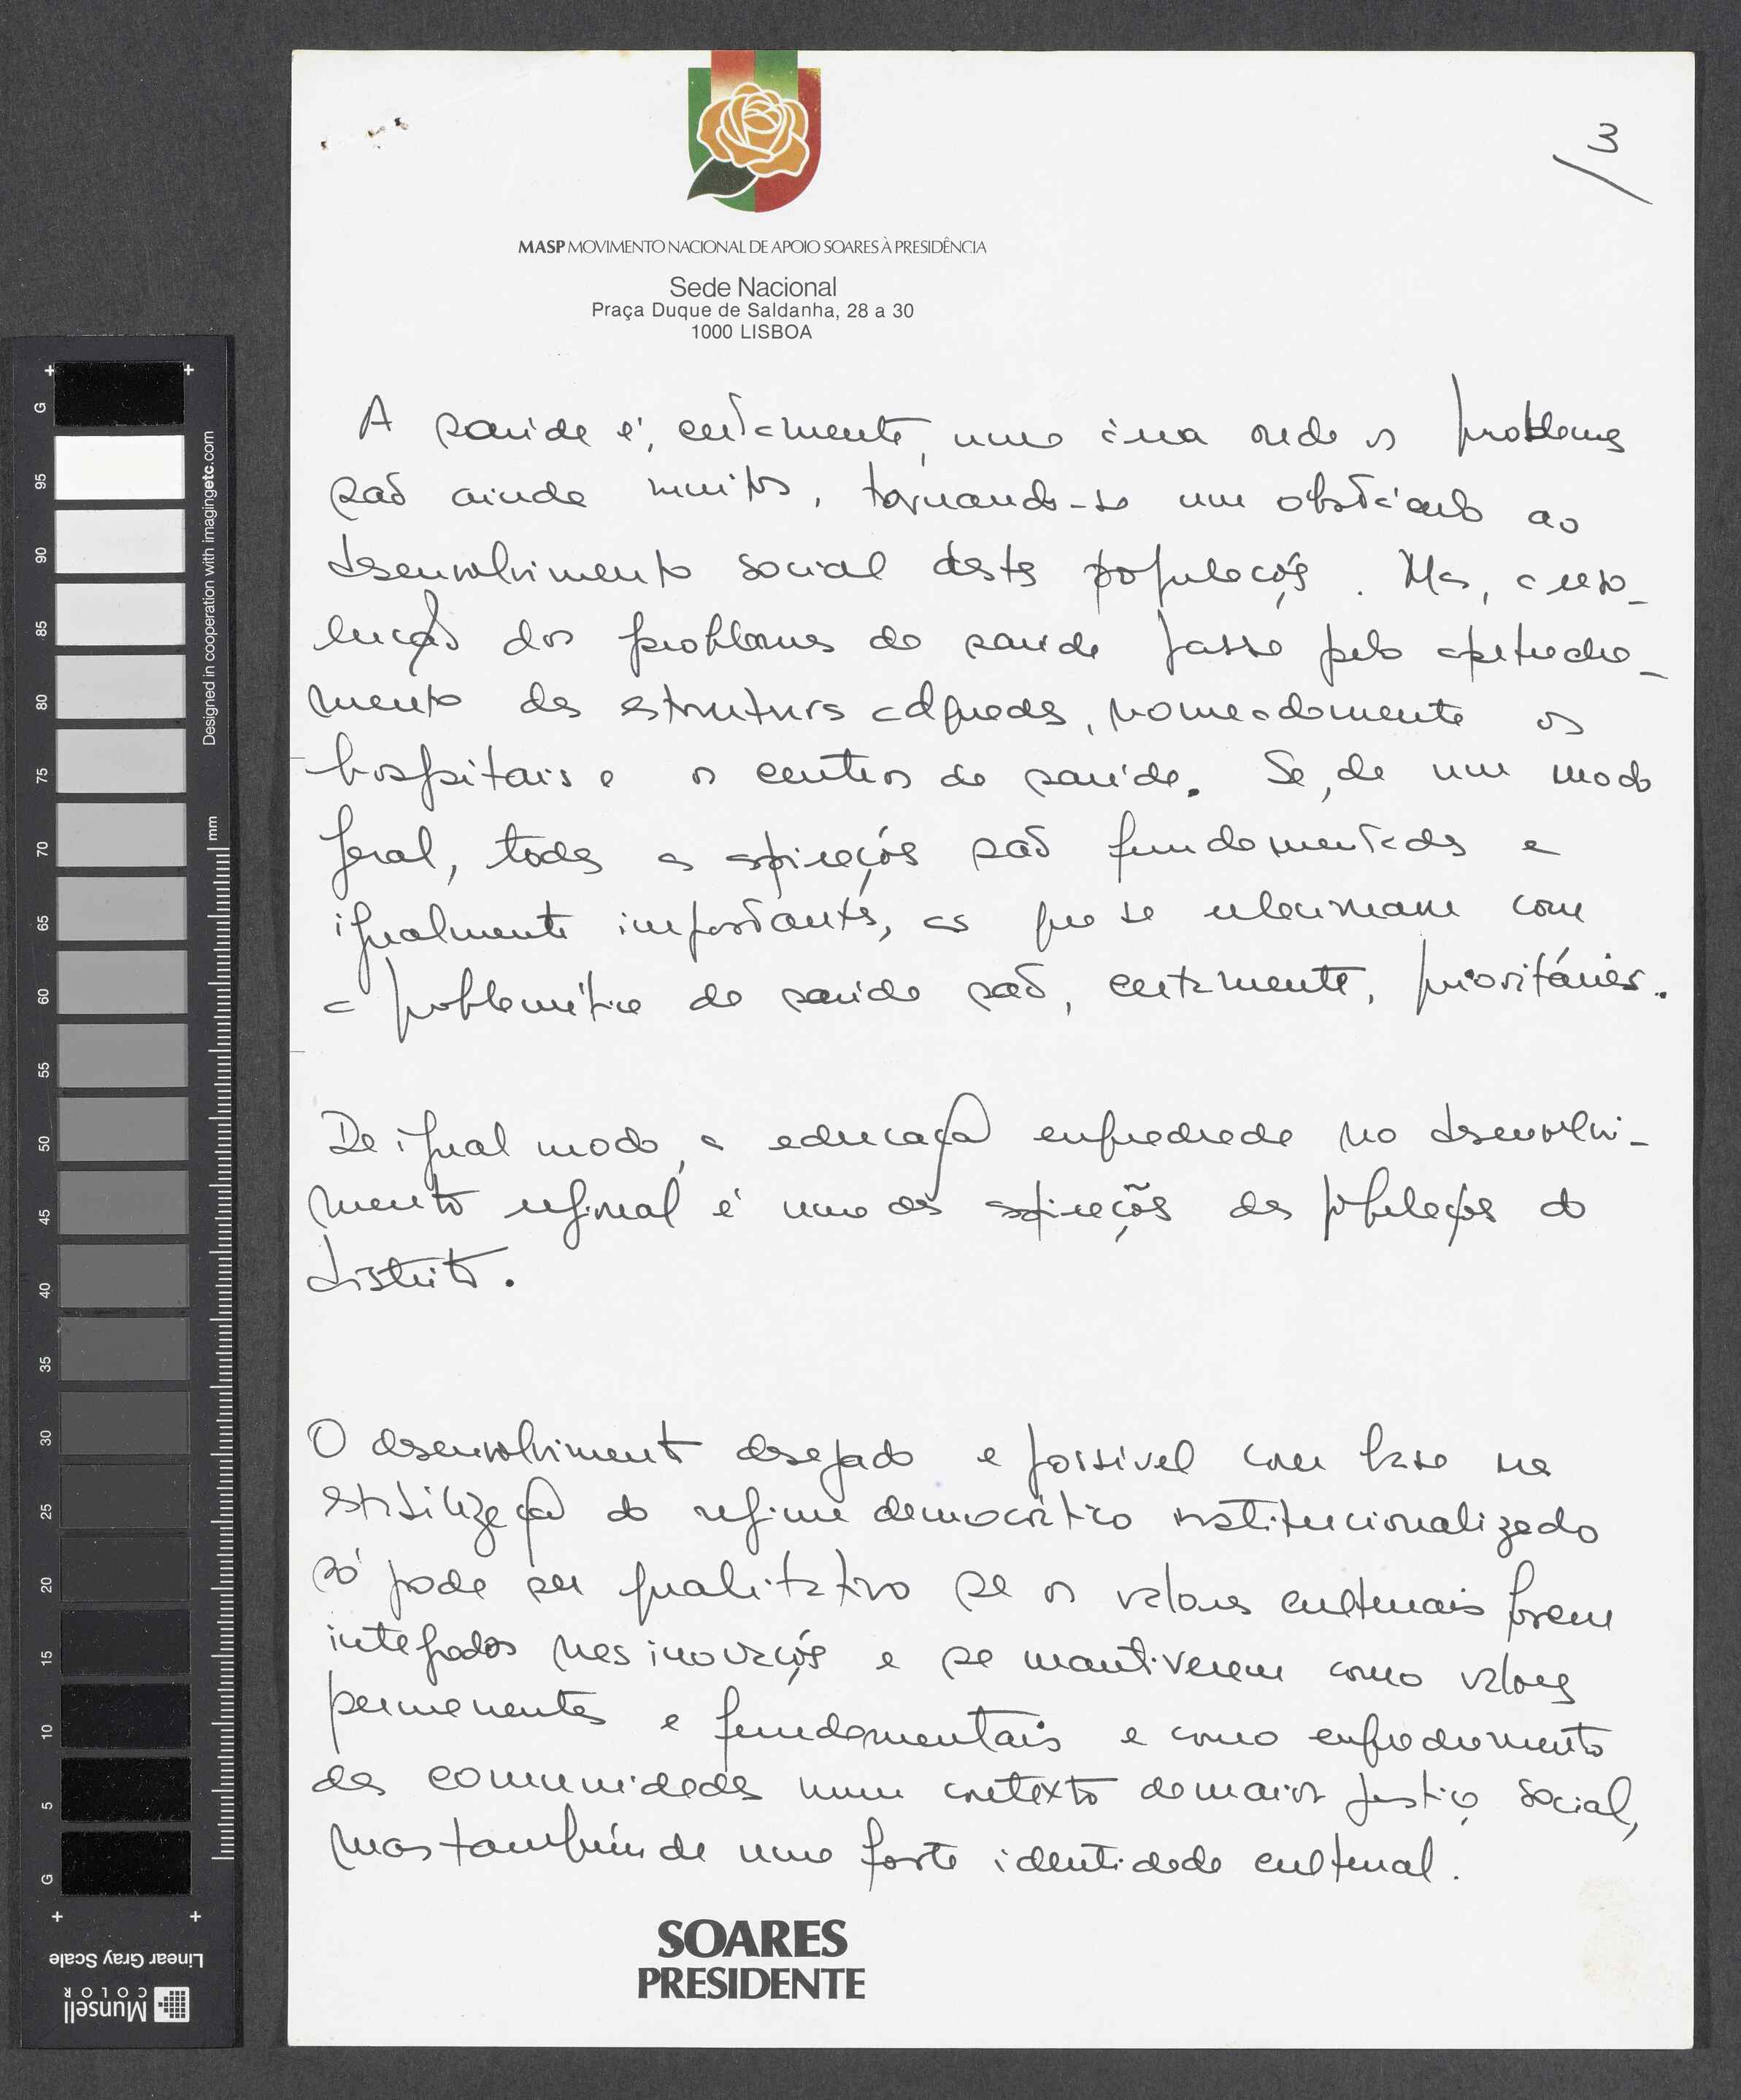 3
MASP MOVIMENTO NACIONAL DE APOIO SOARES À PRESIDÊNCIA
Sede Nacional
Praça Duque de Saldanha, 28 a 30
1000 LISBOA
A saúde é, certamente, uma área onde os problemas
são ainda muitos, tornando-se um obstáculo ao
desenvolvimento social destas populações. Mas, a reso-
lução dos problemas de saúde passa pelo apetrecha-
mento das estruturas adequadas, nomeadamente os
hospitais e os centros de saúde. Se, de um modo
geral, todas as aspirações são fundamentadas e
igualmente importantes, as que se relacionam com
a problemática da saúde são, certamente, prioritárias.
De igual modo, a educação enquadrada no desenvolvi-
mento regional é uma das aspirações das populações do
distrito.
O desenvolvimento desejado e possível com base na
estabilização do regime democrático institucionalizado
só pode ser qualitativo se os valores culturais forem
integrados nas inovações e se mantiverem como valores
permanentes e fundamentais e como enquadramento
das comunidades num contexto de maior justiça social,
mas também de uma forte identidade cultural.
SOARES
PRESIDENTE
G 95 90 85 80 75 70 65 60 55 50 45 40 35 30 25 20 15 10 5 G
Designed in cooperation with imagingetc.com
mm
Linear Gray Scale
Munsell
COLOR